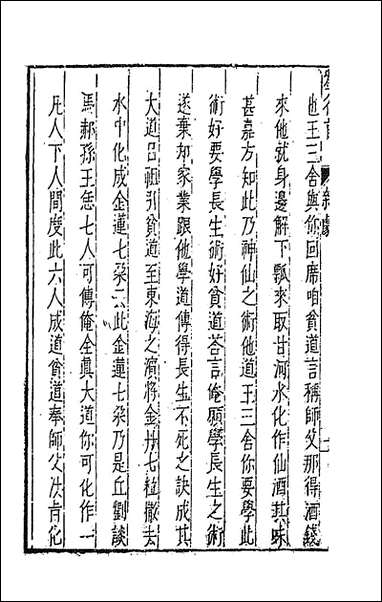 也王三舍與你回席咱貧道言稱師父那得酒錢
來他就身邊解下瓢來取甘河水化作仙酒其味
甚嘉方知此乃神仙之術他道王三舍你要學此
術好要學長生術好貧道荅言俺願學長生之術
遂棄却家業跟他學道傳得長生不死之訣成其
大道呂祖引貧道至東海之濱將金丹七粒撒去
水中化成金蓮七朶云此金蓮七朶乃是丘劉談
馬郝孫王恁七人可傳俺全真大道你可化作一
凡人下人間度此六人成道貧道奉師父法旨化